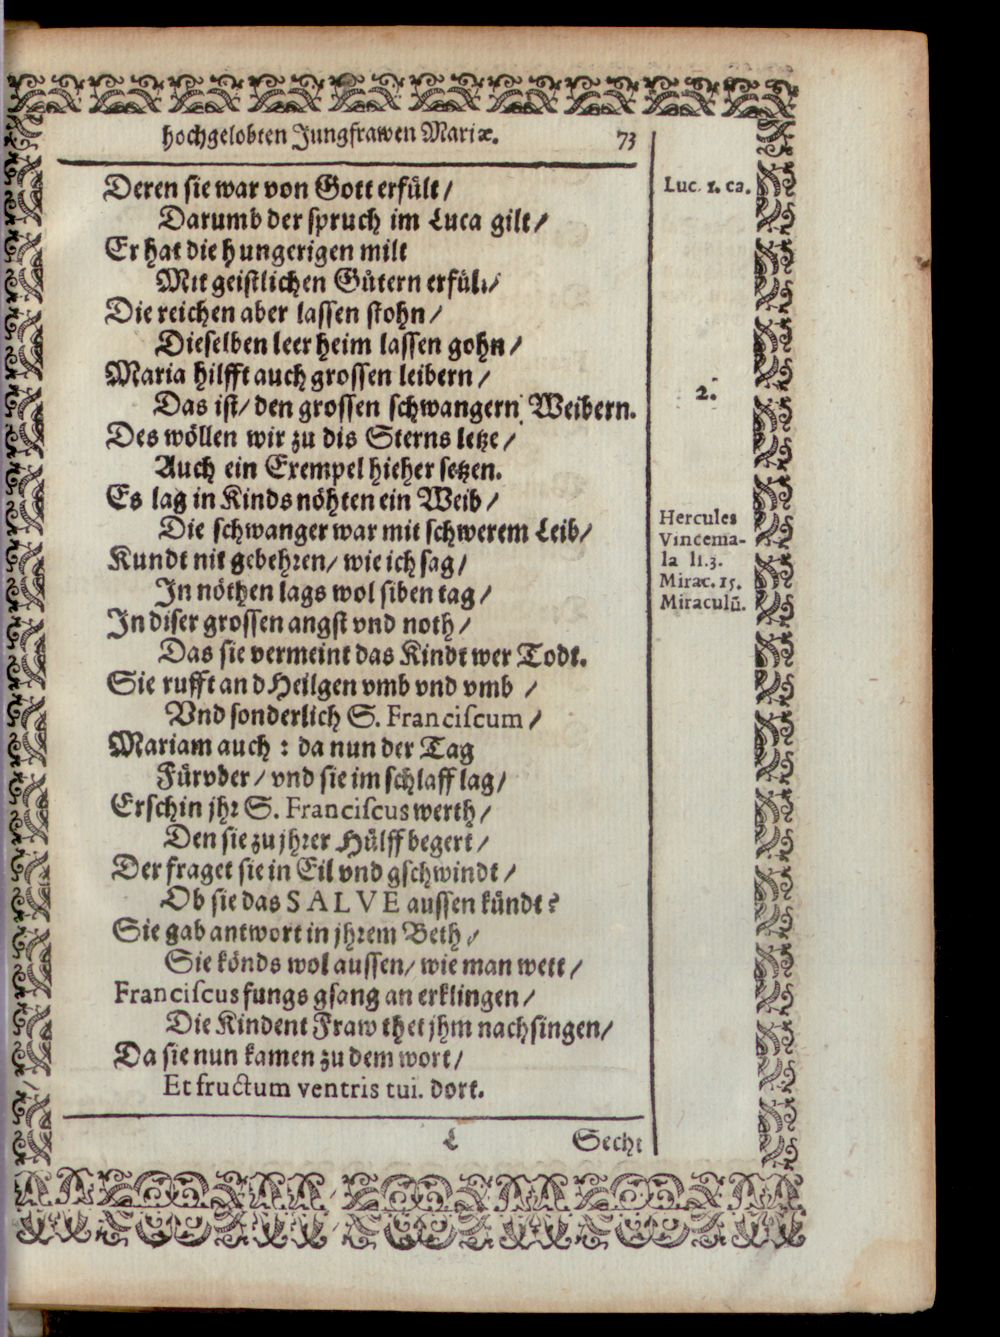 hochgelobten Jungfrawen Mariæ. 73
Deren sie war von Gott erfült/
Luc. 1. ca.
Darumb der spruch im Luca gilt/
Er hat die hungerigen milt
Mit geistlichen Gütern erfült/
Die reichen aber lassen stohn/
Dieselben leer heim lassen gohn/
Maria hilfft auch grossen leibern/
2.
Das ist/ den grossen schwangern Weibern.
Des wöllen wir zu dis Sterns letze/
Auch ein Exempel hieher setzen.
Es lag in Kindsnöhten ein Weib/
Die schwanger war mit schwerem Leib/
Kundt nit gebehren/ wie ich sag/
In nöthen lags wol siben tag/
In diser grossen angst vnd noth/
Das sie vermeint das Kindt wer Todt.
Hercules
Vincema-
la li.3.
Mirac. 15.
Miraculū.
Sie rufft an d Heilgen vmb vnd vmb /
Vnd sonderlich S. Franciscum/
Mariam auch : da nun der Tag
Fürvber/ vnd sie im schlaff lag/
Erschin jhr S. Franciscus werth/
Den sie zu jhrer Hülff begert/
Der fraget sie in Eil vnd gschwindt/
Ob sie das SALVE aussen kündt?
Sie gab antwort in jhrem Beth/
Sie könds wol aussen/ wie man wett/
Franciscus fungs gsang an erklingen/
Die Kindent Fraw thet jhm nachsingen/
Da sie nun kamen zu dem wort/
Et fructum ventris tui. dort.
L Secht